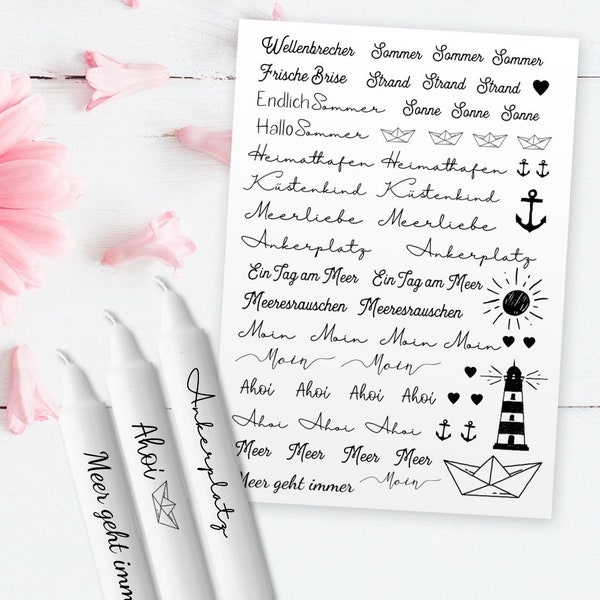 Wellenbrecher Sommer Sommer Sommer
Frische Brise Strand Strand Strand
Endlich Sommer Sonne Sonne Sonne
Hallo Sommer
Heimathafen Heimathafen
Küstenkind Küstenkind
Meerliebe Meerliebe
Ankerplatz Ankerplatz
Ein Tag am Meer Ein Tag am Meer
Meeresrauschen Meeresrauschen
Moin Moin Moin Moin
Moin Moin
Ahoi Ahoi Ahoi Ahoi
Ahoi Ahoi Ahoi
Meer Meer Meer Meer
Meer geht immer Moin
Meer geht imm
Ahoi
Ankerplatz